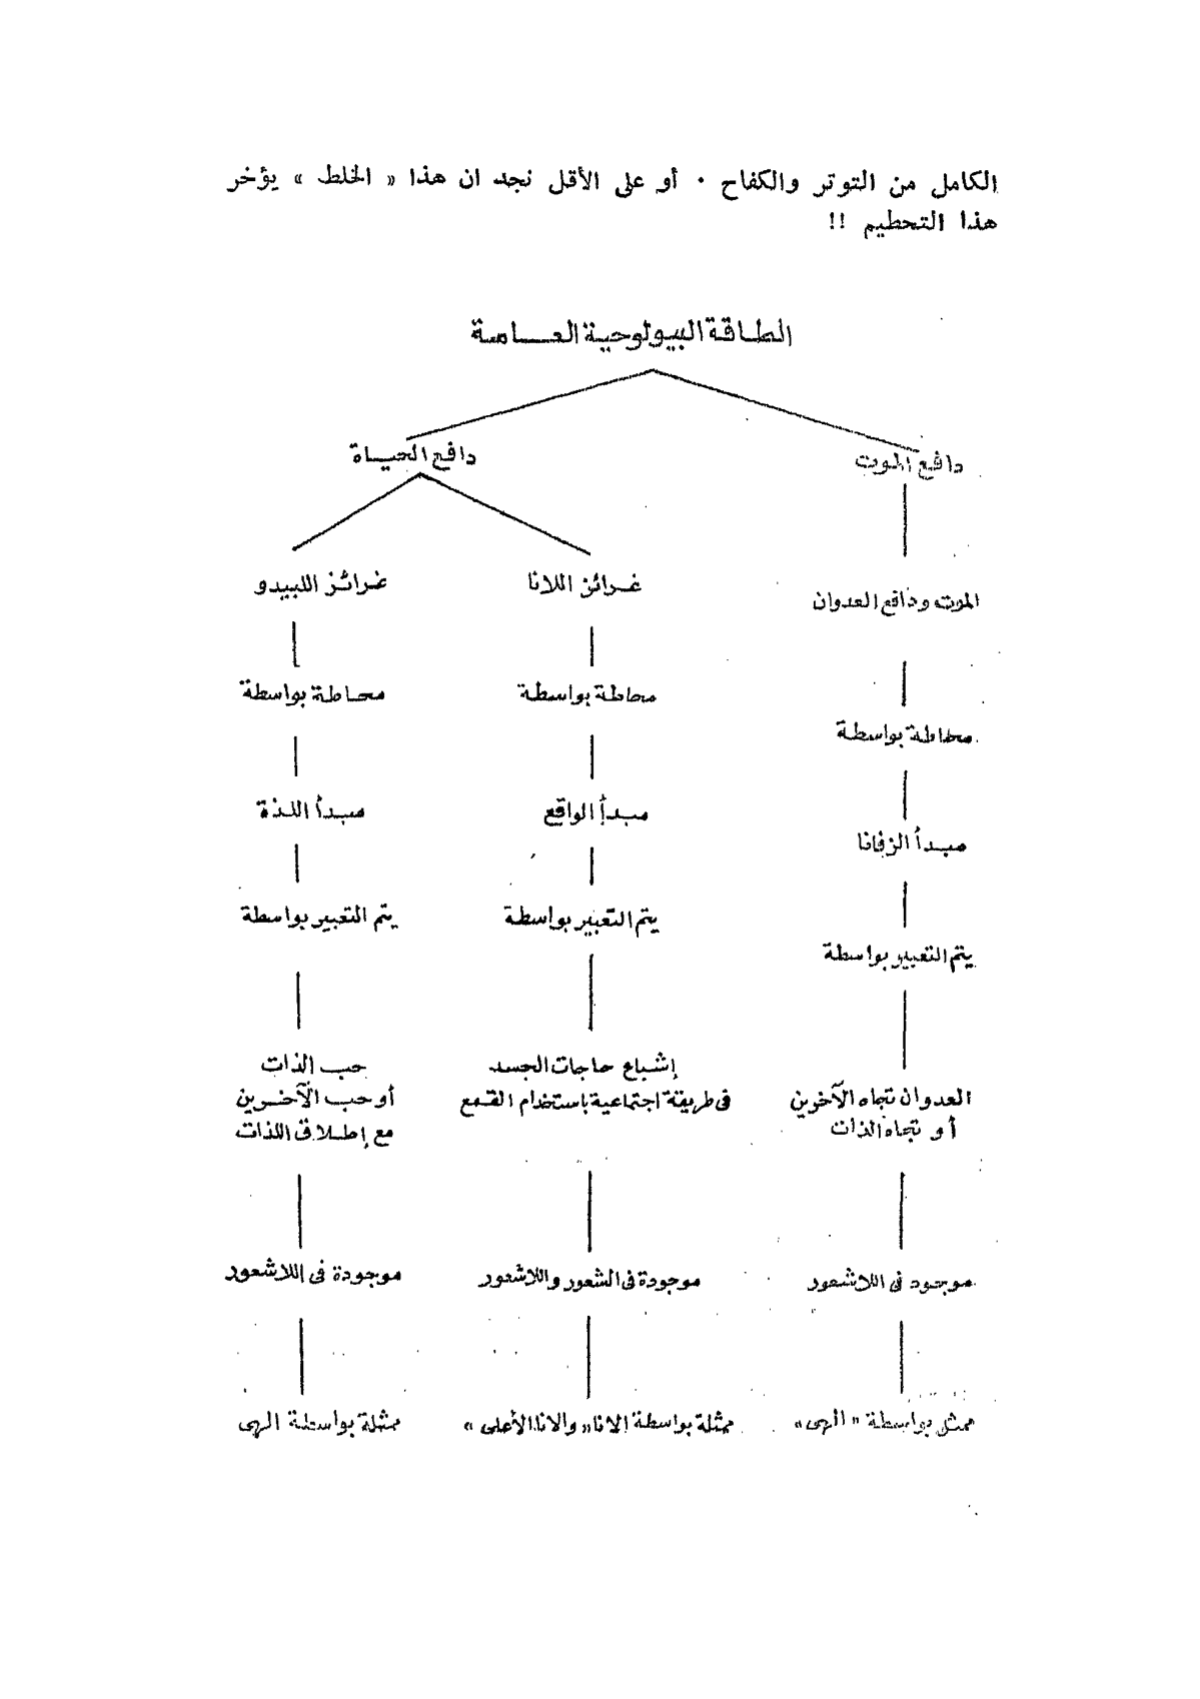 الكامل من التوتر والكفاح ٠ أو على الأقل نجد ان هذا « الخلط » يؤخر
هذا التحطيم !!
الطاقة البيولوحية العامة
دافع الموت
دافع الحياة
الموت ودافع العدوان
غرائز اللانا
غرائز اللبيدو
محاطة بواسطة
محاطة بواسطة
محاطة بواسطة
مبدأ
مبدأ الواقع
مبدأ اللذة
يتم التعبير بواسطة
يتم التعبير بواسطة
يتم التعبير بواسطة
العدوان تجاه الآخرين
أو تجاه الذات
إشباع حاجات الجسد
فى طريقة اجتماعية باستخدام القمع
حب الذات
أو حب الآخرين
مع إطلاق اللذات
موجود فى اللاشعور
موجودة فى الشعور واللاشعور
موجودة فى اللاشعور
ممثل بواسطة « الهى »
ممثلة بواسطة الانا « والانا الأعلى »
ممثلة بواسطة الهى